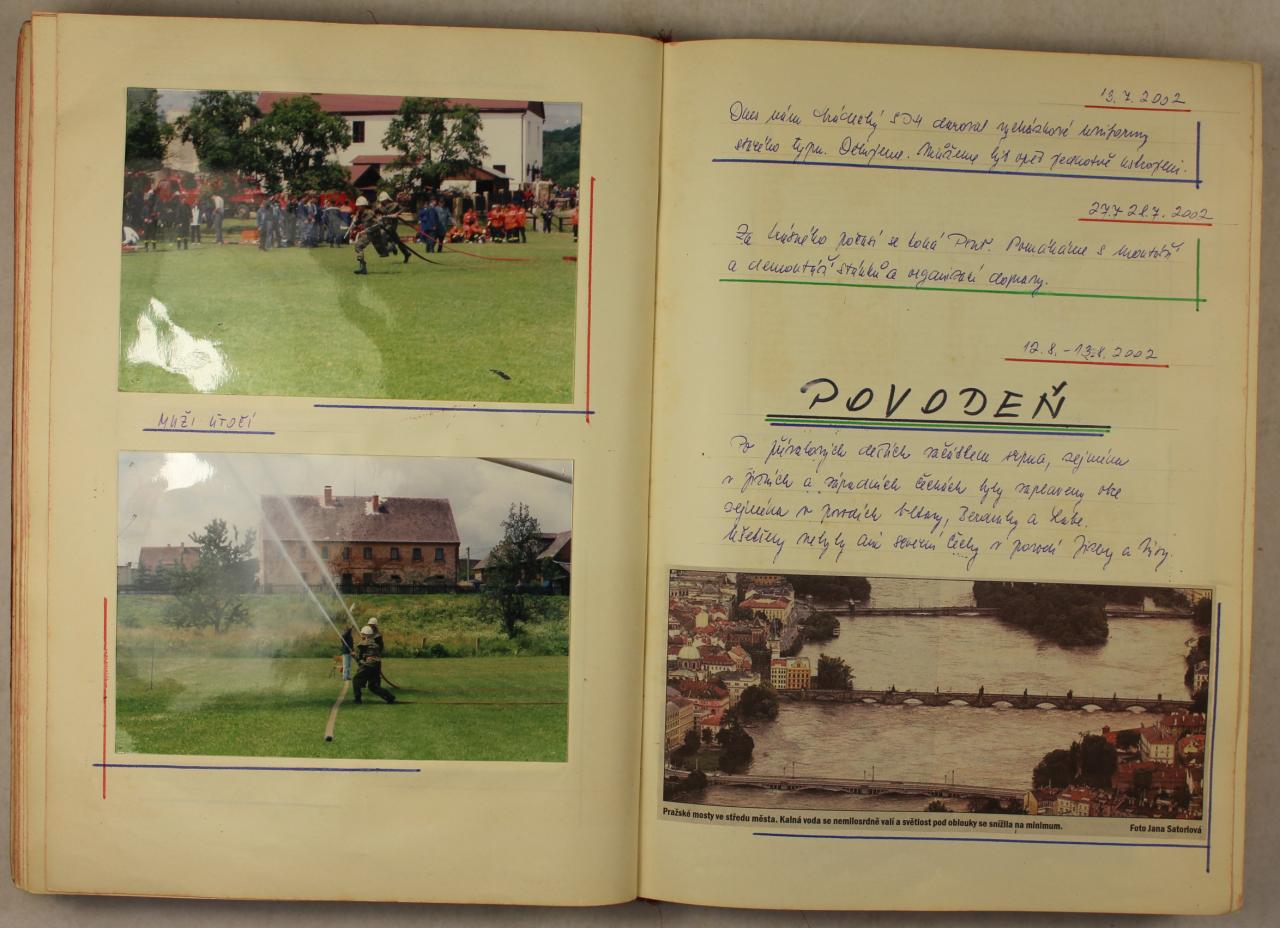 MUŽI ÚTOČÍ
13.7.2002
Dnes nám hrádecký SDH daroval vycházkové uniformy
starého typu. Děkujeme. Můžeme být opět jednotně ustrojeni.
27.7 28.7. 2002
Za krásného počasí se koná Pouť. Pomáháme s montáží
a demontáží stánků a organizací dopravy.
12.8. - 13.8. 2002
POVODEŇ
Po přívalových deštích začátkem srpna, zejména
v jižních a západních Čechách byly zaplaveny obce
zejména v povodích Vltavy, Berounky a Labe.
Ušetřeny nebyly ani severní Čechy v povodí Jizery a Nisy.
Pražské mosty ve středu města. Kalná voda se nemilosrdně valí a světlost pod oblouky se snížila na minimum.
Foto Jana Satorlová